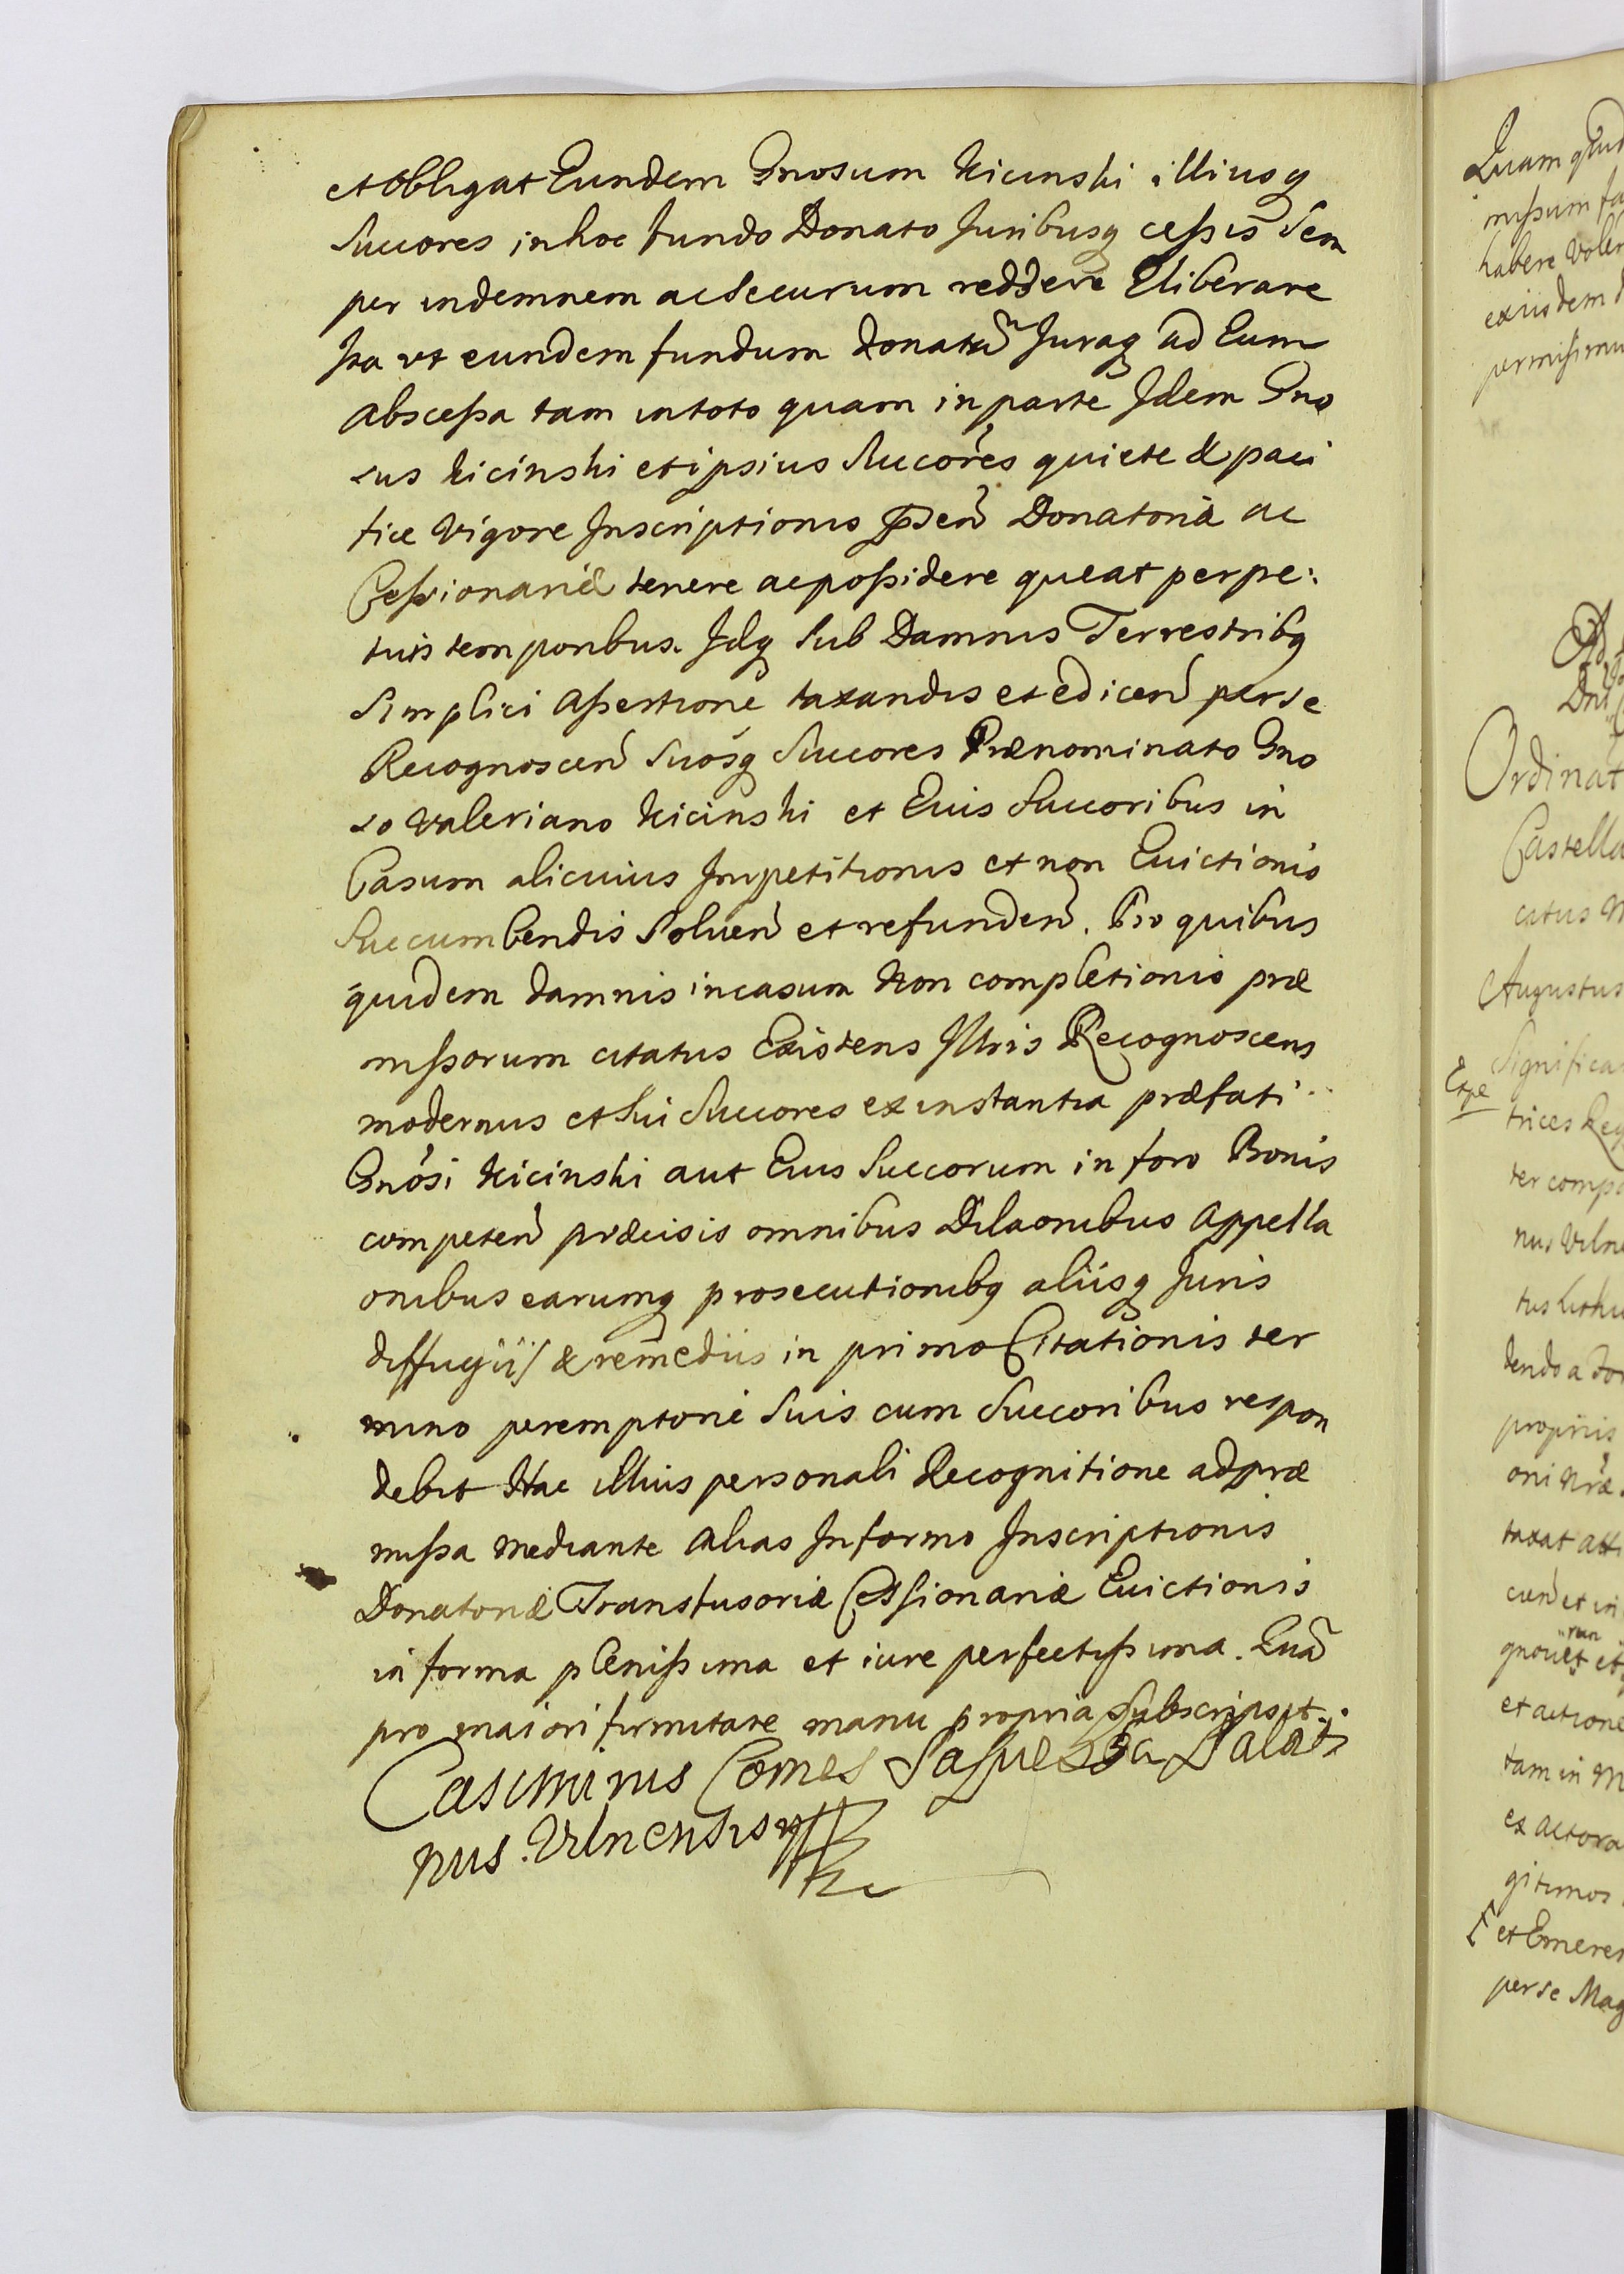 et obligat Eundem Gnosum Kicinski illiusq
Succores in hoc fundo Donato Juribusq cessis Sem
per indemnem ac Securum reddere Eliberare
Ita vt eundem fundum donatũ Juraq ad Eum
Abscessa tam in toto quam in parte Idem Gno
sus Kicinski et ipsius Succores quiete & paci
fice Vigore Inscriptionis Donatoriæ ac
Cessionariæ tenere ac possidere queat perpe:
tuis temporibus. Idq Sub Damnis Terrestribq
Simplici Assertione taxandis et edicen per se
Recognoscen Suosq Succores Prænominato Gno
so Valeriano Kicinski et Eius Succoribus in
Casum alicuius Impetitionis et non Euictionis
Succumbendis Soluen et refunden. Pro quibus
quidem damnis in casum Non completionis præ
missorum citatus Existens Illris Recognoscens
modernus et Sui Succores ex instantia præfati
Gnosi Kicinski aut Eius Succorum in foro Bonis
competen præcisis omnibus Dilaonibus Appella
onibus earumq prosecutionibq aliisq Juris
diffugiis & remediis in primo Citationis ter
mino peremptorie Suis cum Succoribus respon
debit Hac illius personali Recognitione ad præ
missa mediante alias Informa Inscriptionis
Donatoriæ Transfusoriæ Cessionariæ Euictionis
in forma plenissima et iure perfectissima. Quã
pro maiori firmitate manu propria Subscripsit.
Casimirus Comes Sapieha Palati
nus. Vilnensis
Quam
missum
habere
exiisdem
permissimu
Ad
Ordinat
Castella
catus
Augustus
Significa
Etpe
trices Reg
ter compa
nus Vilne
tus Lithu
dendo a
propriis
oni
taxat
cun et in
run
gnouit et
et actione
tam in M
ex actora
gitimos
et Emeren
per se Mag